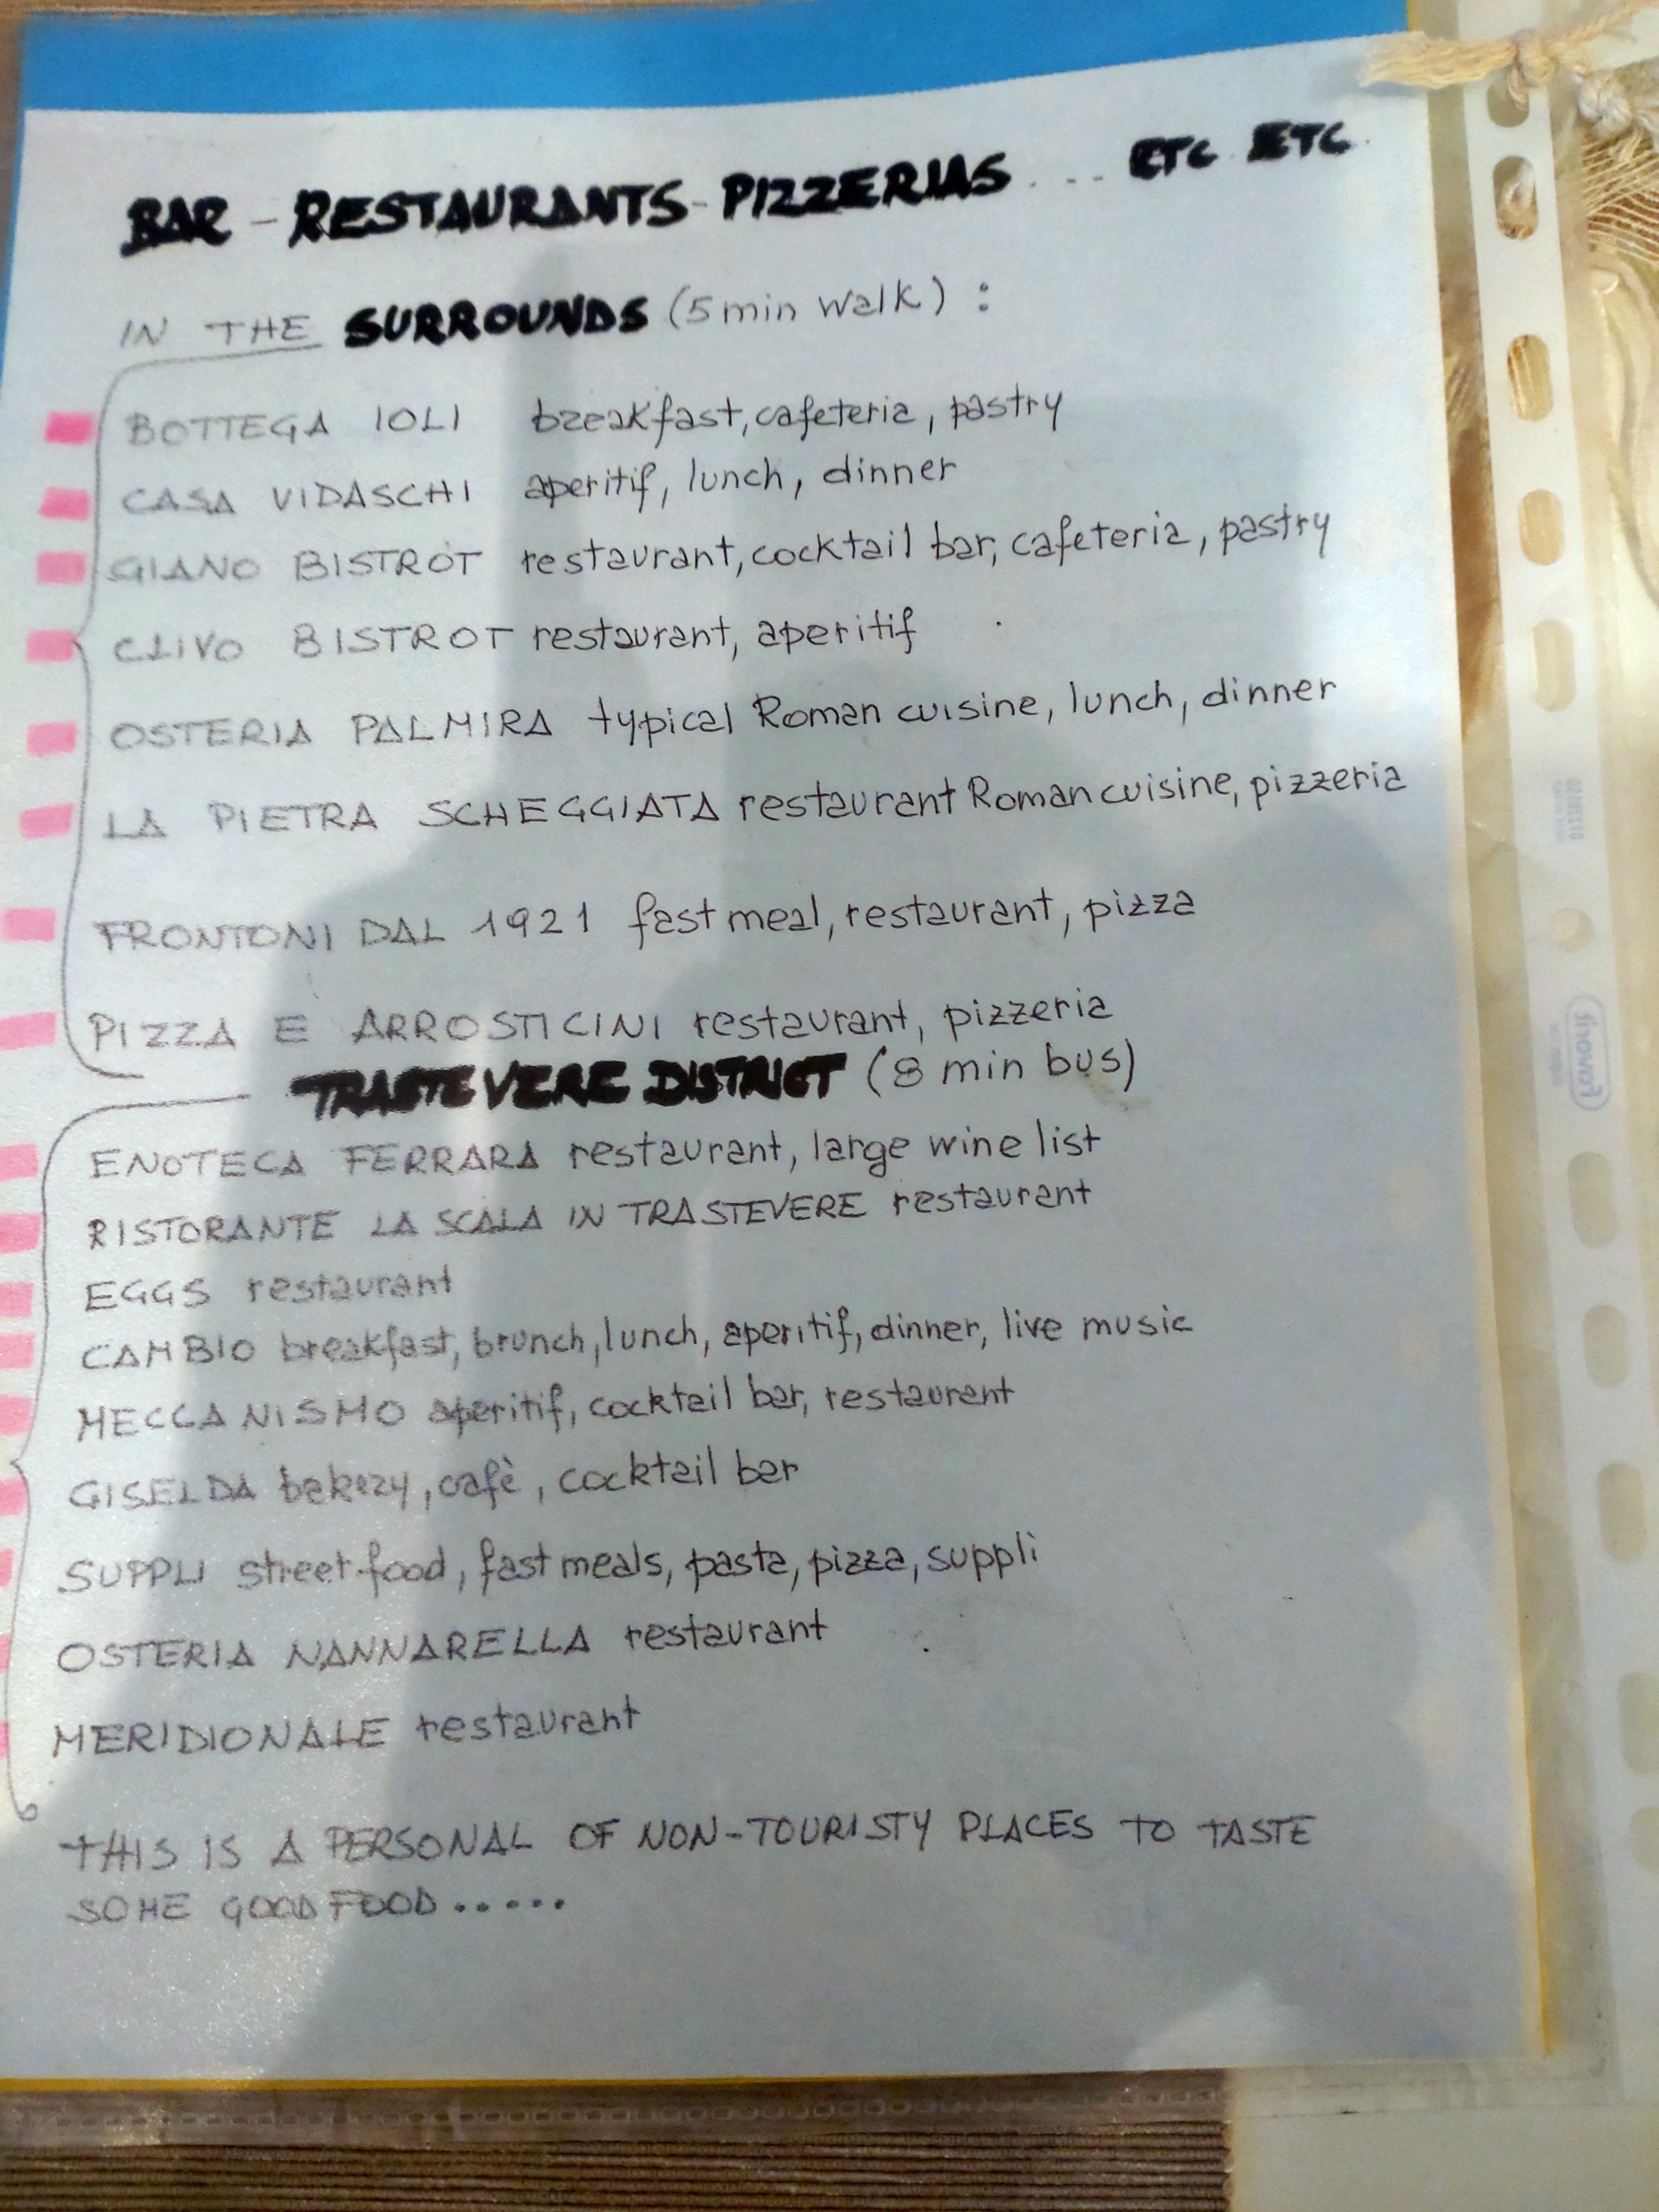 BAR - RESTAURANTS - PIZZERIAS ... ETC ETC
IN THE SURROUNDS (5 min walk) :
BOTTEGA IOLI breakfast, cafeteria, pastry
CASA VIDASCHI aperitif, lunch, dinner
GIANO BISTROT restaurant, cocktail bar, cafeteria, pastry
CLIVO BISTROT restaurant, aperitif
OSTERIA PALMIRA typical Roman cuisine, lunch, dinner
LA PIETRA SCHEGGIATA restaurant Roman cuisine, pizzeria
FRONTONI DAL 1921 fast meal, restaurant, pizza
PIZZA E ARROSTICINI restaurant, pizzeria
TRASTEVERE DISTRICT (8 min bus)
ENOTECA FERRARA restaurant, large wine list
RISTORANTE LA SCALA IN TRASTEVERE restaurant
EGGS restaurant
CAMBIO breakfast, brunch, lunch, aperitif, dinner, live music
MECCANISMO aperitif, cocktail bar, restaurant
GISELDA bakery, cafè, cocktail bar
SUPPLI street food, fast meals, pasta, pizza, suppli
OSTERIA NANNARELLA restaurant
MERIDIONALE restaurant
THIS IS A PERSONAL OF NON-TOURISTY PLACES TO TASTE
SOME GOOD FOOD.....
Favorit